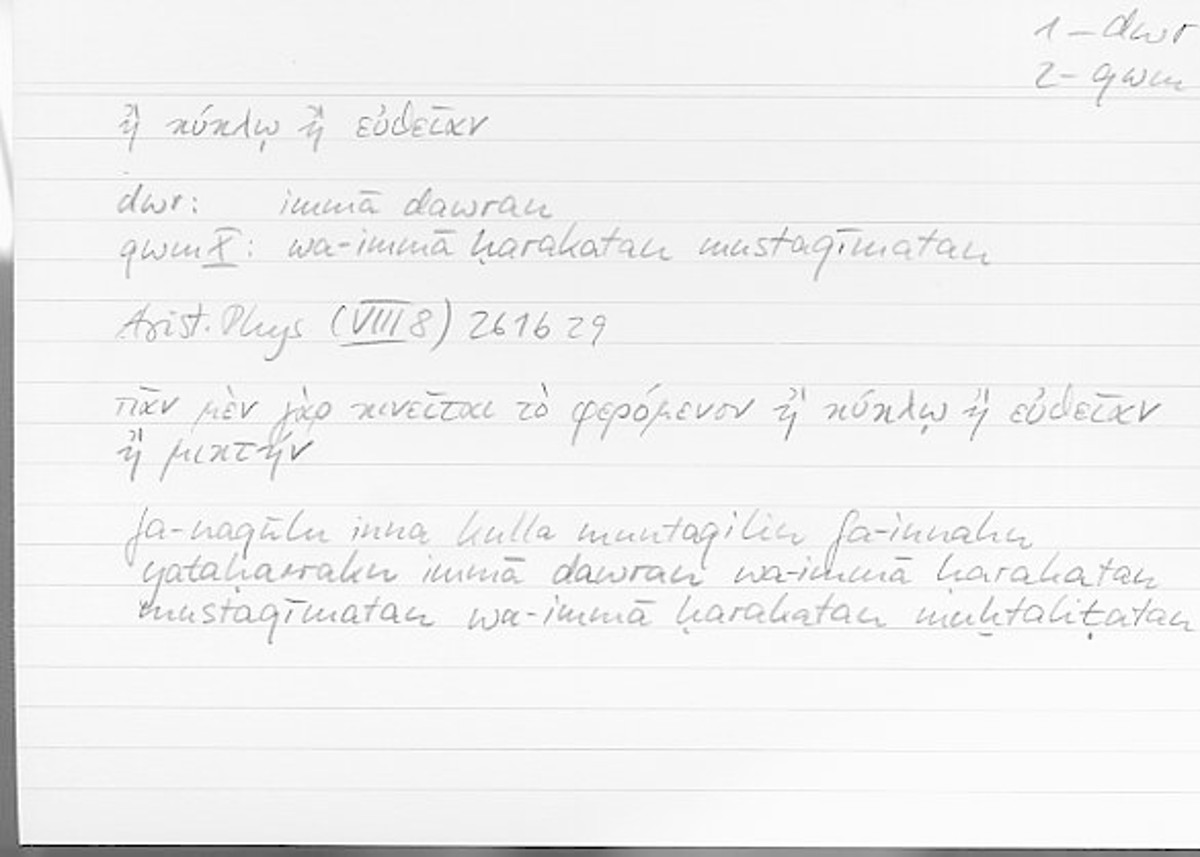 1 – dwr
2 – qwm
ἢ κύκλῳ ἢ εὐθεῖαν
dwr: immā dawran
qwm X: wa-immā ḥarakatan mustaqīmatan
Arist. Phys (VIII 8) 261b29
πᾶν μὲν γὰρ κινεῖται τὸ φερόμενον ἢ κύκλῳ ἢ εὐθεῖαν
ἢ μικτήν
fa-naqūlu inna kulla muntaqilin fa-innahu
yataḥarraku immā dawran wa-immā ḥarakatan
mustaqīmatan wa-immā ḥarakatan muḫtaliṭatan